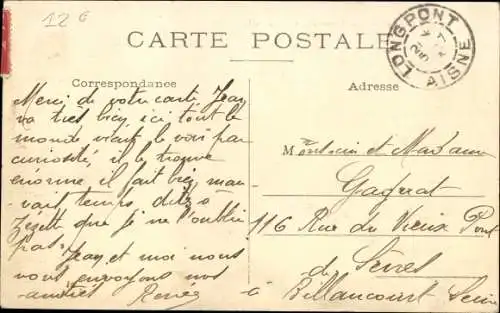 12 €
CARTE POSTALE
LONGPONT
AISNE
Correspondance
Adresse
Merci de votre carte, Jean
va très bien, ici tout le
monde vient le voir par
curiosité, il le trouve
énorme il fait bien mau
vait temps dites à
Zézette que je ne l'oublie
pas. Jean et moi nous
vous envoyons nos
amitiés Renée
Monsieur et Madame
116 Rue du Vieux Pont
de Sèvres
à Billancourt Seine